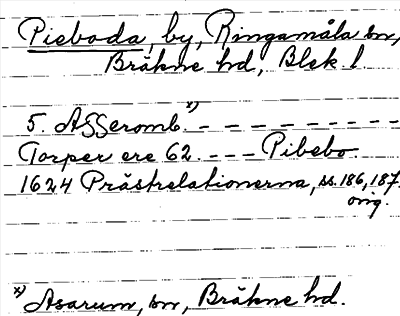 Pieboda, by, Ringamåla sn,
Bräkne hd, Blek. l.
5. Asseromb.x) - - - - - - - - -
Torper ere 62. - - - Pibebo.
1624 Prästrelationerna, ss. 186, 187.
orig.
x) Asarum, sn, Bräkne hd.